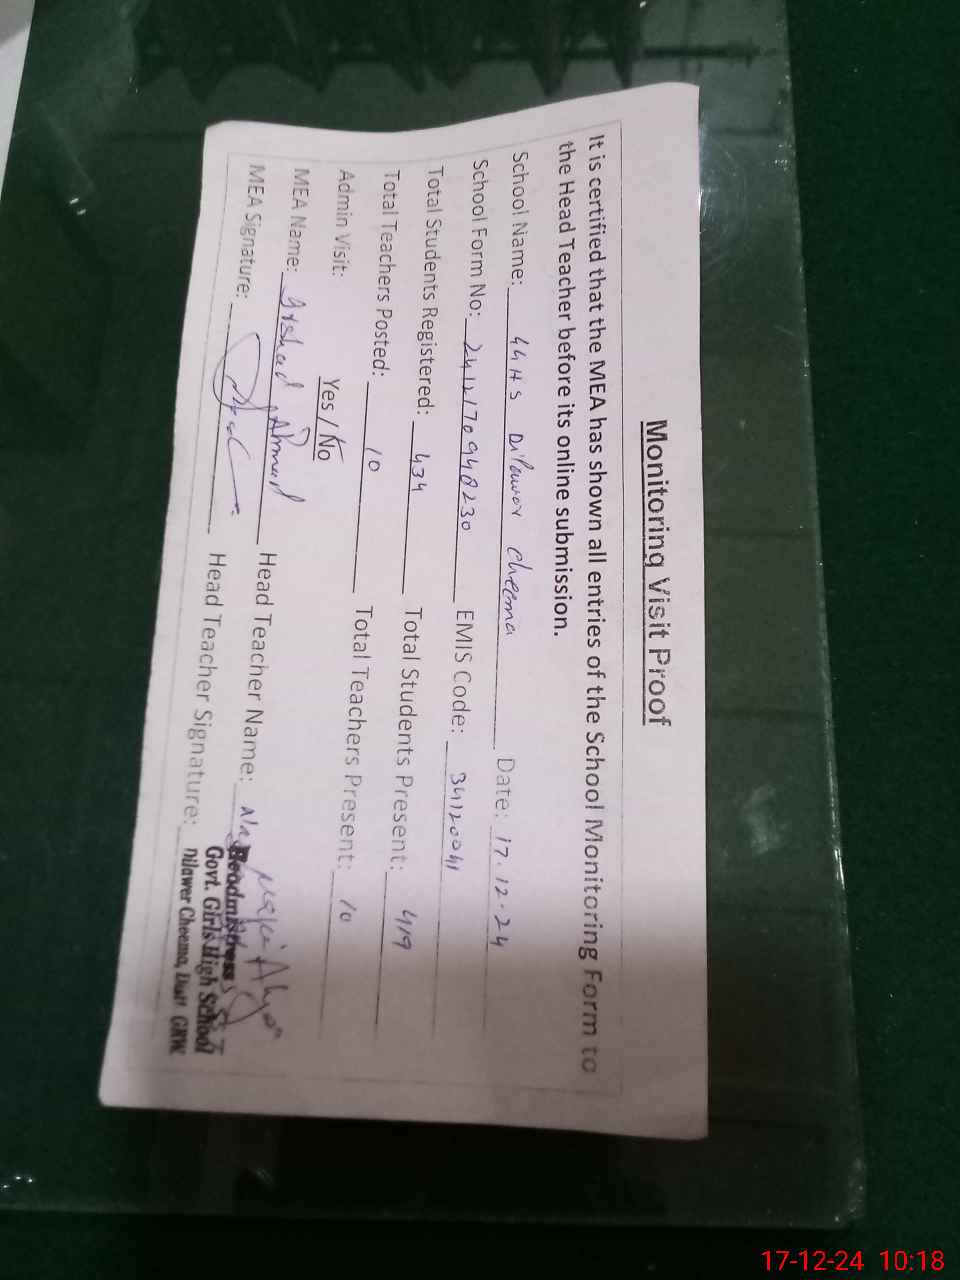 Monitoring Visit Proof
It is certified that the MEA has shown all entries of the School Monitoring Form to
the Head Teacher before its online submission.
School Name: GGHS Dilawar Cheema Date: 17.12.24
School Form No: 2412170948230 EMIS Code: 34120041
Total Students Registered: 434 Total Students Present: 419
Total Teachers Posted: 10 Total Teachers Present: 10
Admin Visit: Yes / No
MEA Name: Arshad Ahmad Head Teacher Name:
MEA Signature: Head Teacher Signature:
Headmistress
Govt. Girls High School
Dilawer Cheema, Distt GRW.
17-12-24 10:18